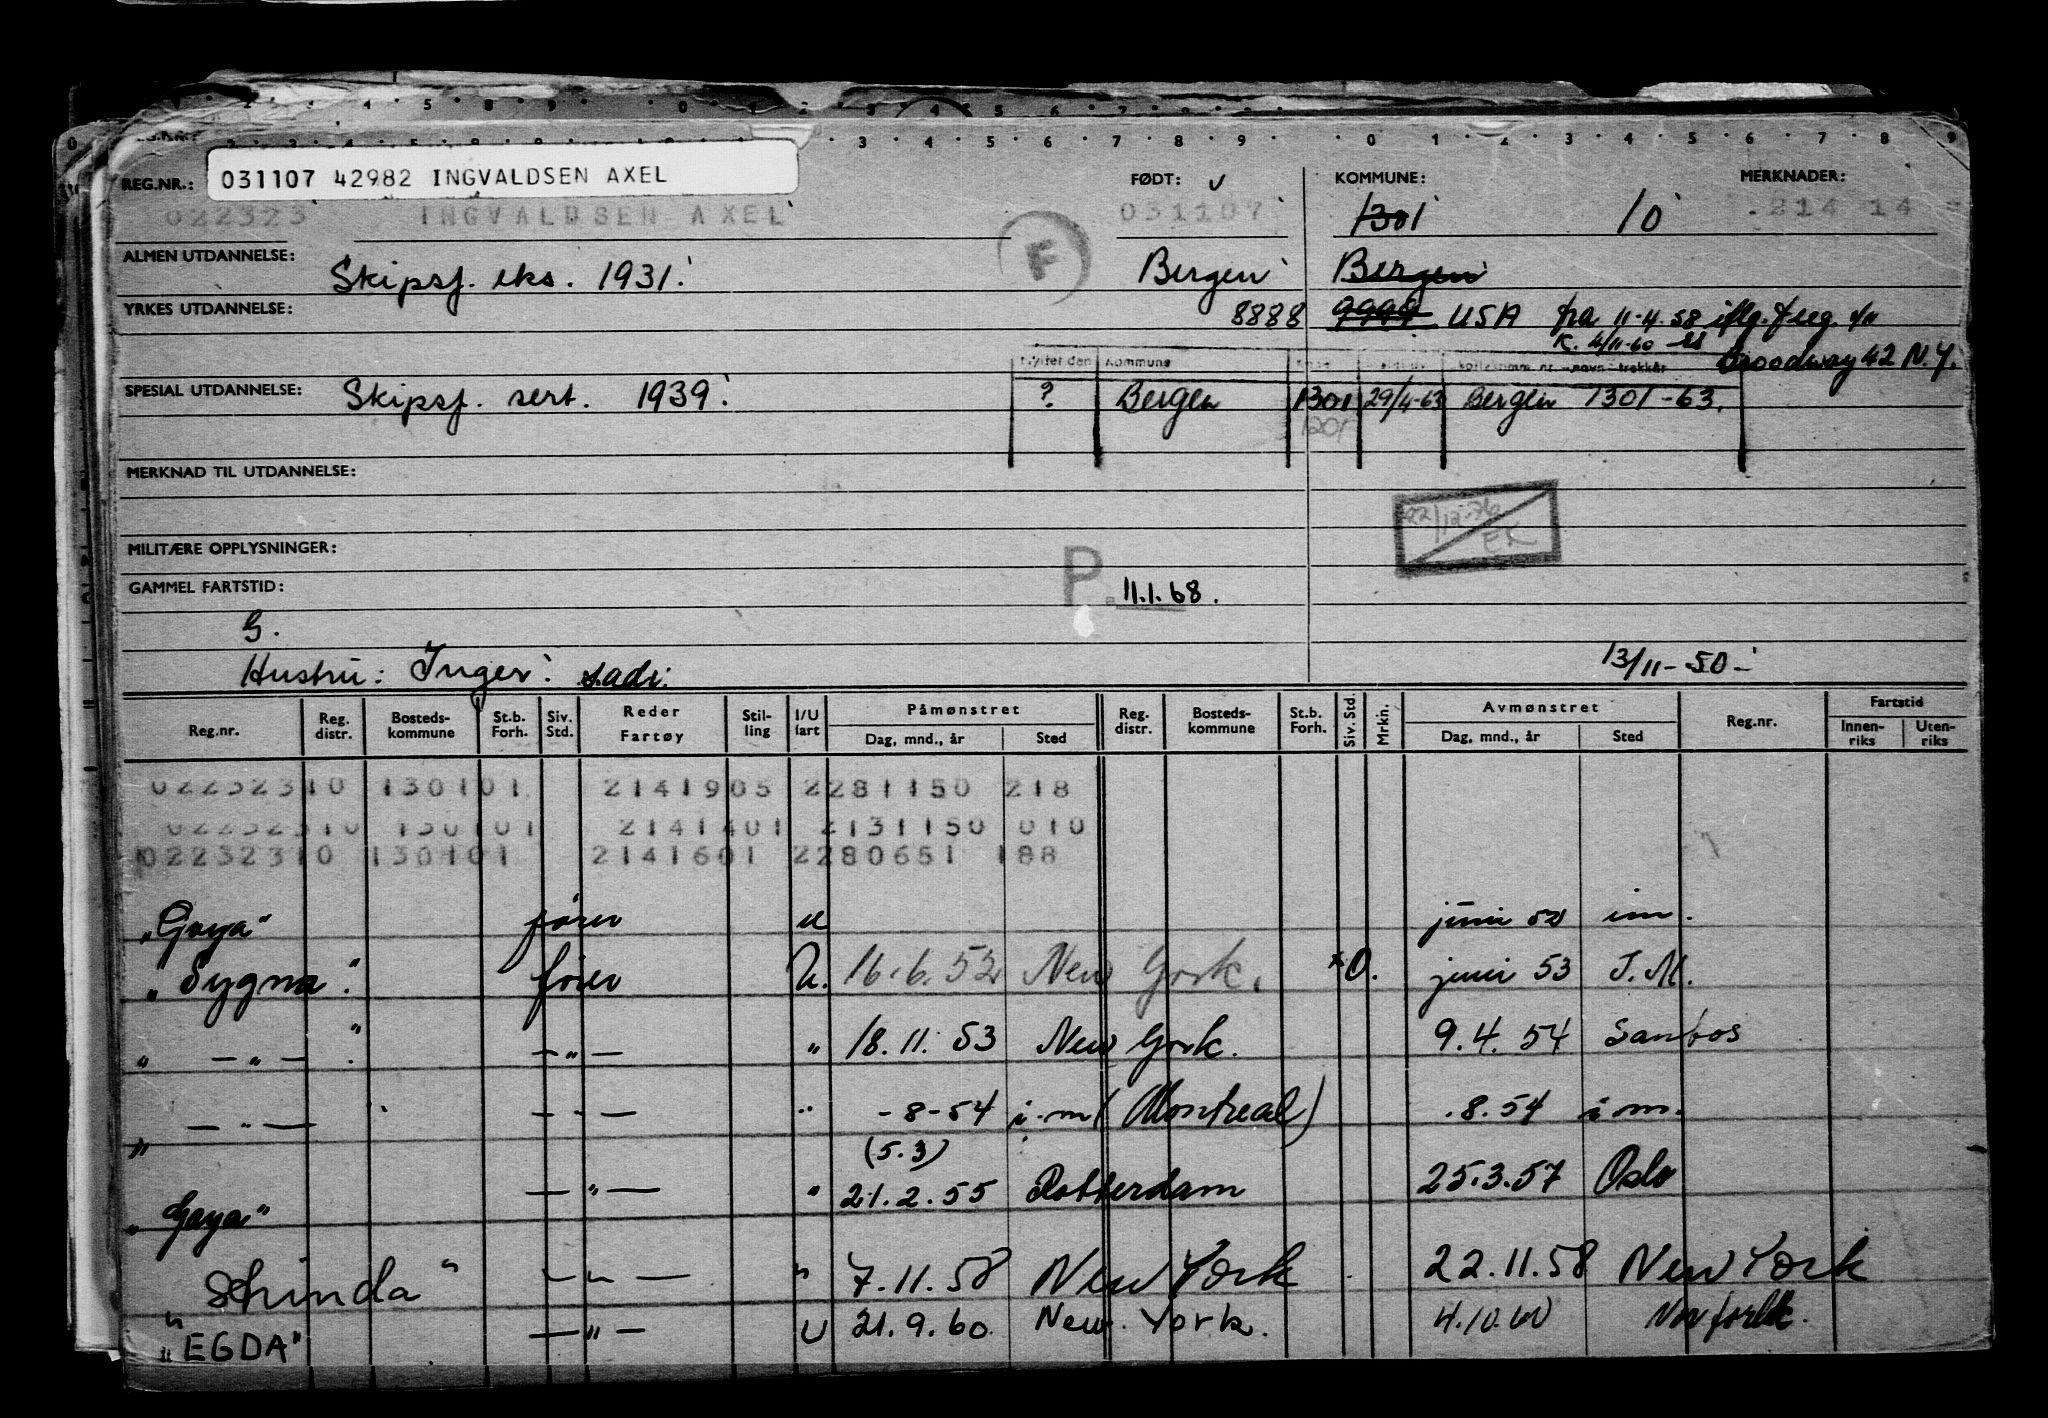 REG.NR.: 031107 42982 INGVALDSEN AXEL FØDT: KOMMUNE: MERKNADER:
022323 INGVALDSEN AXEL 031107 1301 10 214 14
F
ALMEN UTDANNELSE: Skipsf. eks. 1931. Bergen Bergen
YRKES UTDANNELSE: 8888 9999 USA fra 11-4.58
K. 4/11-60
Broadway 42 N.Y.
Flyttet den Kommune
SPESIAL UTDANNELSE: Skipsf. sert. 1939. ? Bergen 1301 29/4-63 Bergen 1301-63.
1201
MERKNAD TIL UTDANNELSE:
22/12-76 EK
MILITÆRE OPPLYSNINGER:
GAMMEL FARTSTID: P. 11.1.68.
G.
Hustru: Inger. s.adr. 13/11-50-
Reg.nr. Reg. distr. Bosteds- kommune St.b. Forh. Siv. Std. Reder Fartøy Stil- ling I/U fart Påmønstret Dag, mnd., år Sted Reg. distr. Bosteds- kommune St.b. Forh. Siv. Std. Mrkn. Avmønstret Dag, mnd., år Sted Reg.nr. Fartstid Innen- riks Uten- riks
02232310 130101 2141905 2281150 218
02232310 130101 2141401 2131150 010
02232310 130101 2141601 2280651 188
"Goya" fører u juni 52 im.
"Sygna". fører U. 16.6.52 New York. *O. juni 53 I.M.
" — " — " — " — " 18.11.53 New York. 9.4.54 Santos
" — " — — " — " -8-54 i.m (Montreal) .8.54 i m.
(5.3)
"Goya" — " — " 21.2.55 Rotterdam 25.3.57 Oslo
"Skinda" — " — " 7.11.58 New York 22.11.58 New York
"EGDA" — " — U 21.9.60 New York. 4.10.60 Norfolk.